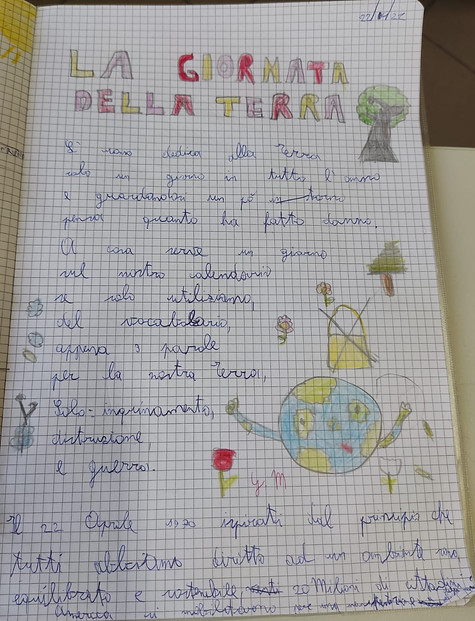 LA GIORNATA
DELLA TERRA
dedica alla Terra
solo un giorno in tutto l'anno
e guardandoci un pò in torno
pensa quanto ha fatto danno.
A cosa serve un giorno
sul nostro calendario
se solo utilizziamo,
del vocabolario,
appena 3 parole
per la nostra Terra,
Solo: inquinamento,
distruzione,
e guerra.
y M
Il 22 Aprile 1970 ispirati dal principio che
tutti abbiamo diretto ad un ambiente sano,
equilibrato e sostenibile, 20 Milioni di
America si mobilitarono per una